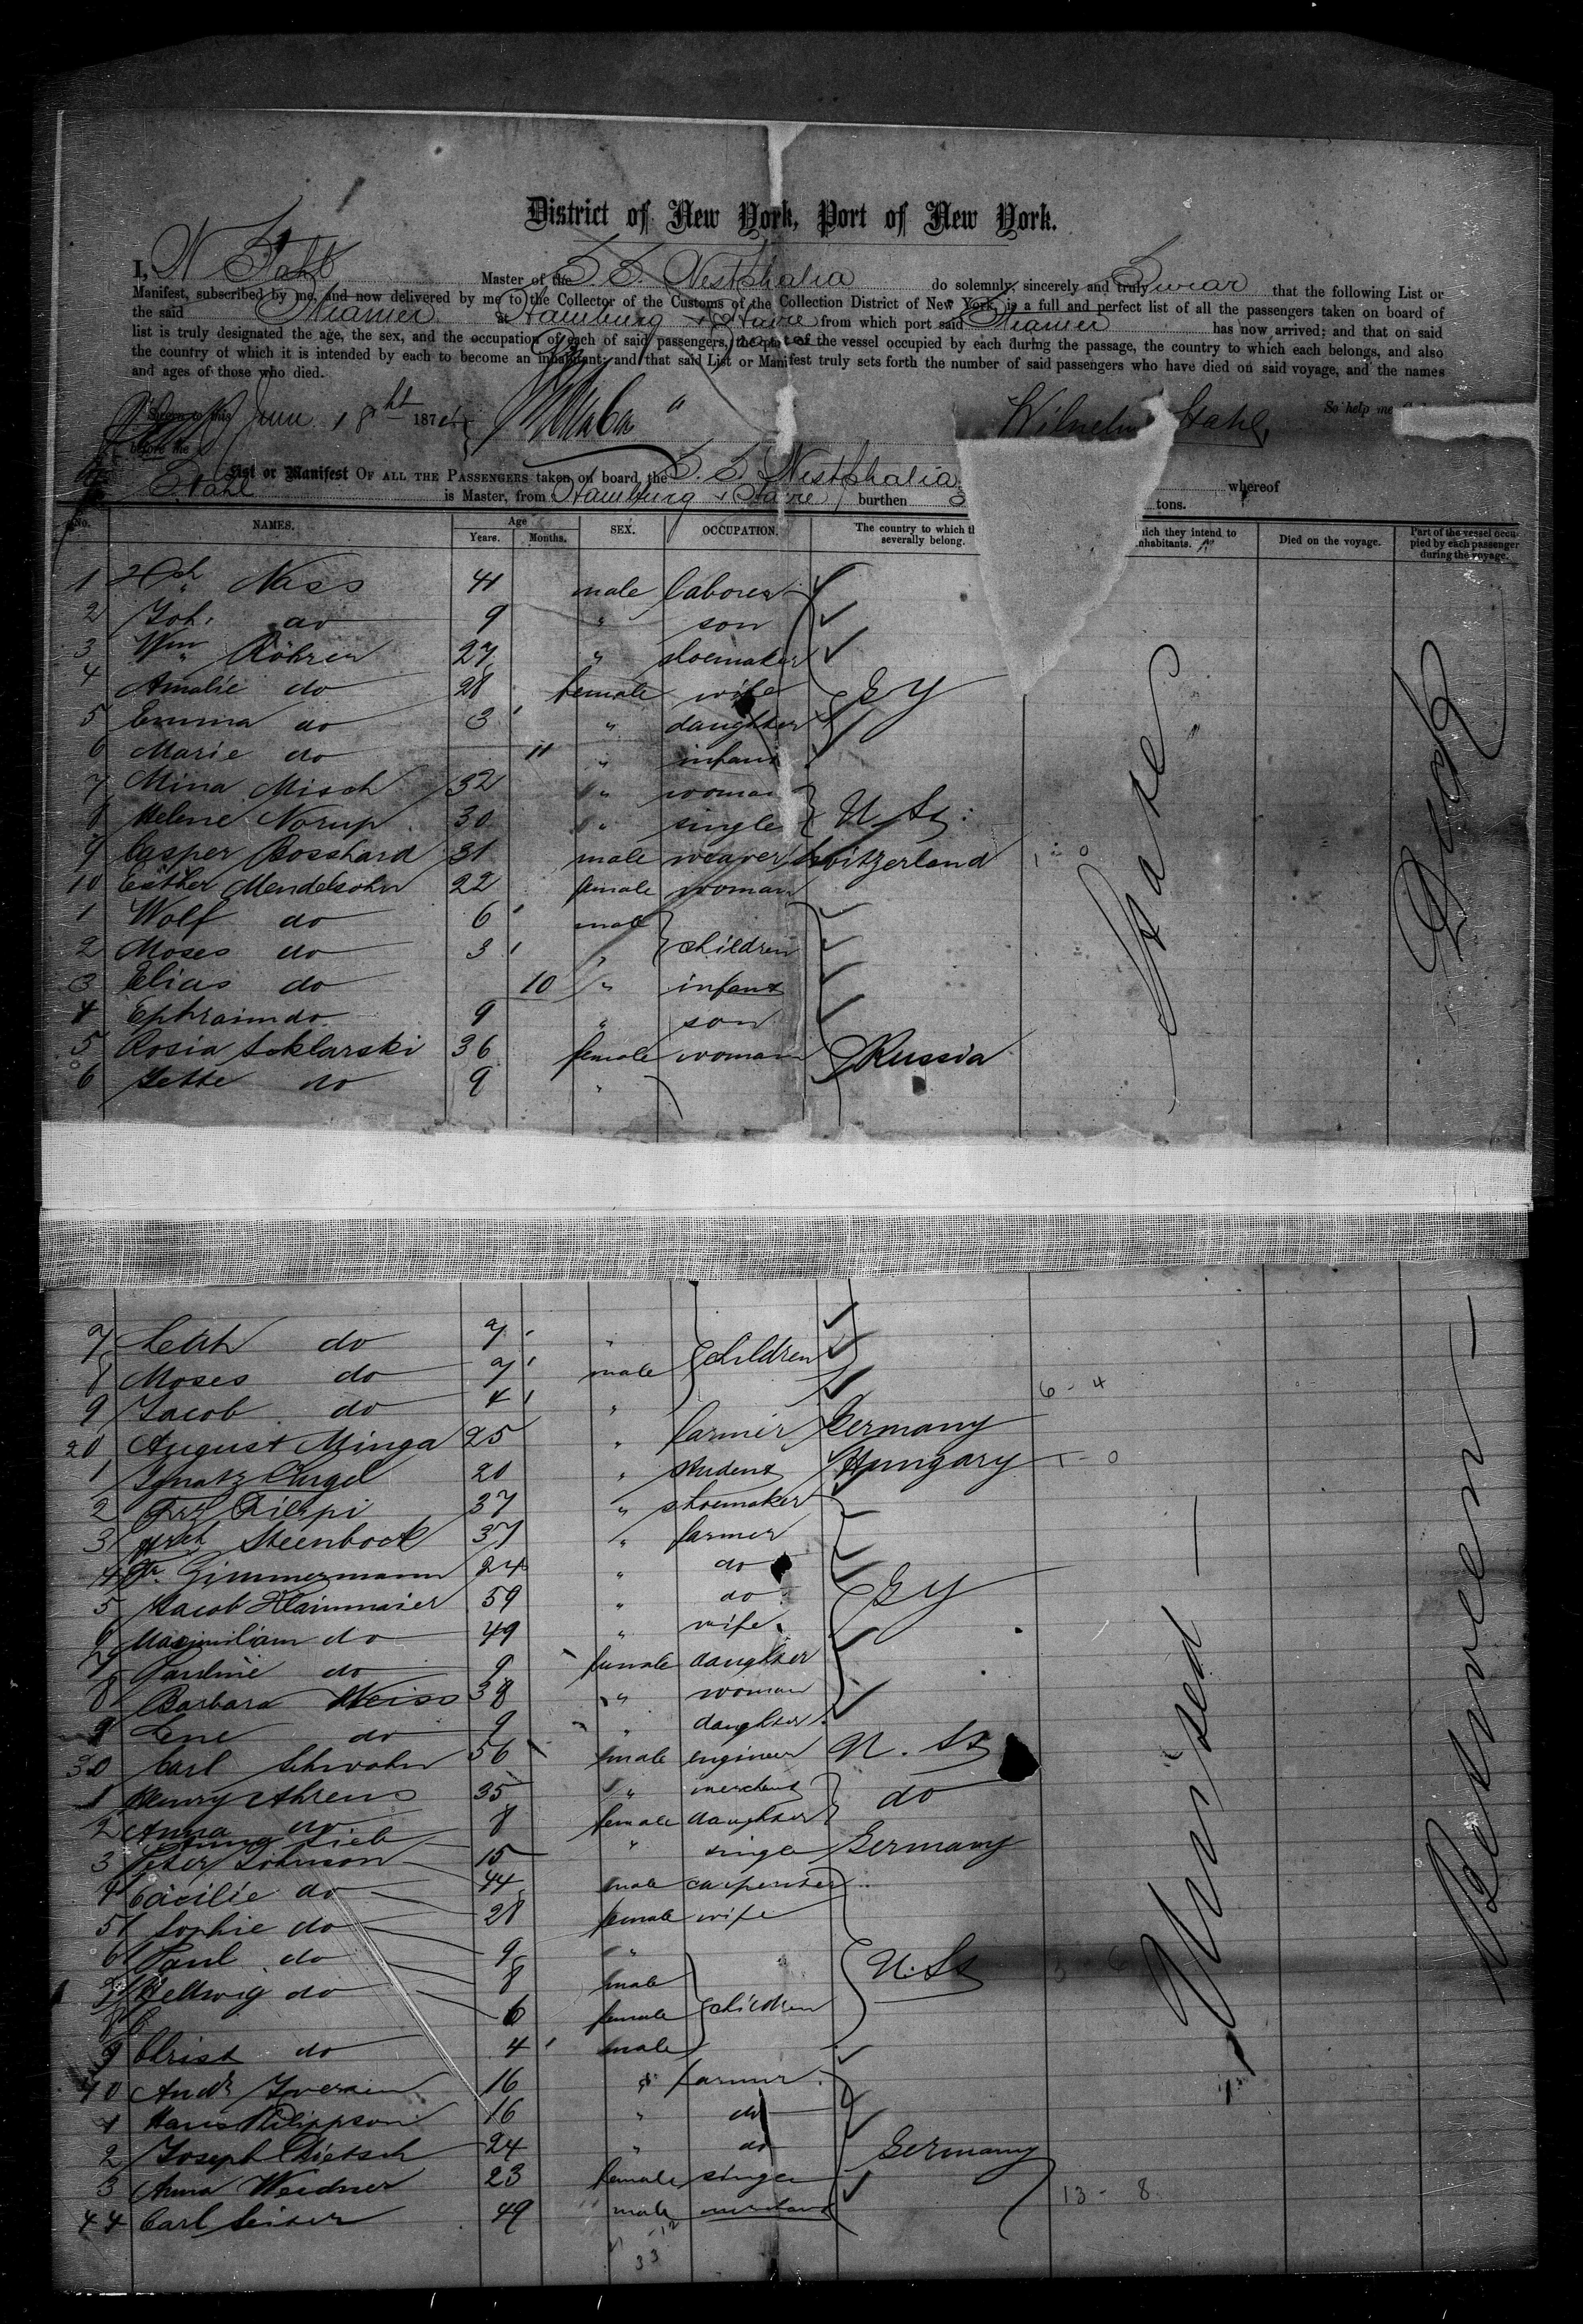 District of New York, Port of New York.
I, W Stahl Master of the S. S. Westphalia do solemnly, sincerely and truly Swear that the following List or
Manifest, subscribed by me, and now delivered by me to the Collector of the Customs of the Collection District of New York, is a full and perfect list of all the passengers taken on board of
the said Steamer at Hamburg & Havre from which port said Steamer has now arrived; and that on said
list is truly designated the age, the sex, and the occupation of each of said passengers, the part of the vessel occupied by each during the passage, the country to which each belongs, and also
the country of which it is intended by each to become an inhabitant; and that said List or Manifest truly sets forth the number of said passengers who have died on said voyage, and the names
and ages of those who died.
So help me
Sworn to this June 18th 187
Wilhelm Stahl
before me
List or Manifest OF ALL THE PASSENGERS taken on board the S. S. Westphalia whereof
Stahl is Master, from Hamburg & Havre burthen tons.
No. NAMES. Age Years. Months. SEX. OCCUPATION. The country to which th severally belong. hich they intend to nhabitants. Died on the voyage. Part of the vessel occupied by each passenger during the voyage.
1 Nass 41 male laborer
2 Joh. do 9 " son
3 Wm Röhren 27 " shoemaker
4 Amalie do 28 female wife Gy
5 Emma do 3 " daughter
6 Marie do 11 " infant
7 Mina Misch 32 " woman
8 Helene Norup 30 " single U. St.
9 Casper Bosshard 31 male weaver Switzerland
10 Esther Mendelsohn 22 female woman
1 Wolf do 6 male
2 Moses do 3 " children
3 Elias do 10 " infant
4 Ephraim do 9 " son
5 Rosia Soklarski 36 female woman Russia
6 Jette do 9 "
7 do 7 "
8 Moses do 7 male children
9 Jacob do 4 " 6 - 4
20 August Minga 25 " farmer Germany
1 Ignatz Engel 20 " student Hungary 1 - 0
2 37 " shoemaker
3 Steenbock 37 " farmer
4 Fr. Zimmermann 24 " do
5 Jacob Klainmaier 59 " do Gy
6 Maximiliam do 49 " wife
7 Pauline do 9 female daughter
8 Barbara Weiss 38 " woman
9 Lene do 9 " daughter
30 Carl Schwohn 56 male engineer U. St
1 Henry Ahrens 35 " merchant do
2 Anna do 8 female daughter
Lieb
3 Peter Johnson 15 " single Germany
4 Cäcilie do 44 male carpenter
5 Sophie do 28 female wife
6 Paul do 9 "
7 Hellwig do 8 male U. St
8 6 female children
9 Christ do 4 male
40 Andr Iversen 16 " farmer
1 Hans Philippson 16 " do
2 Joseph Dietsch 24 " do Germany
3 Anna Weidner 23 female single
44 Carl Seiser 49 male merchant 13 - 8
33
States
United
Deck
Between